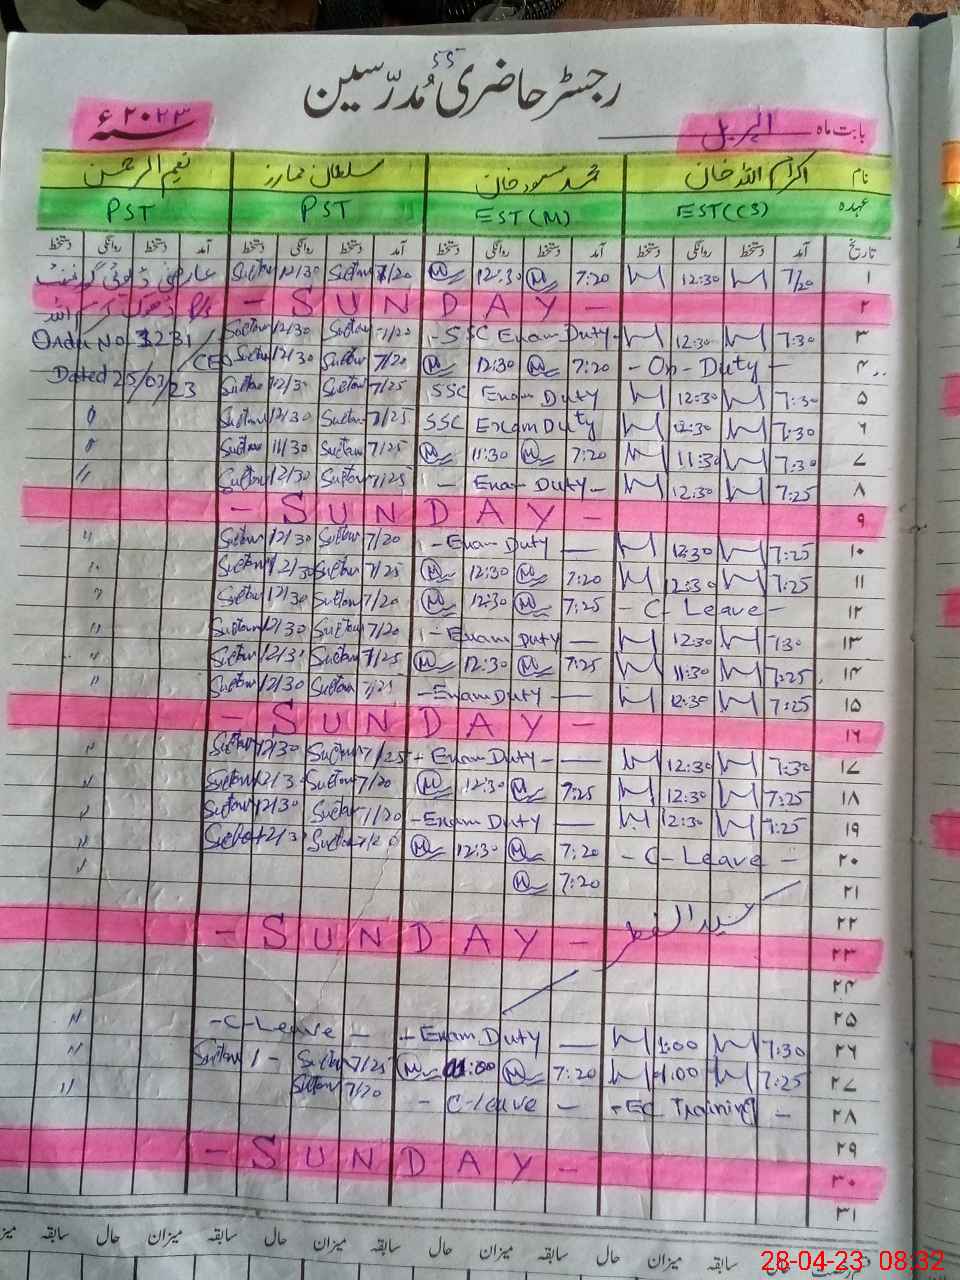 رجسٹر حاضری مُدرّسین
بابت ماہ اپریل سنہ ۲۰۲۳ء
نام اکرام اللہ خان محمد مسعود خان سلطان مبارز نعیم الرحمن
عہدہ EST(CS) EST(M) PST PST
تاریخ آمد دستخط روانگی دستخط آمد دستخط روانگی دستخط آمد دستخط روانگی دستخط آمد دستخط روانگی دستخط
۱ 7/20 12:30 7:20 M 12:30 M 7/20 Sultan 12/30 Sultan عارضی ڈیوٹی گورنمنٹ
۲ - SUNDAY -
۳ 7:30 12:30 - SSC Exam Duty - 7/20 Sultan 12/30 Sultan Order No 3231/
۴ - On - Duty - 7:20 M 12:30 M 7/20 Sultan 12/30 Sultan CEO
۵ 7:30 12:30 SSC Exam Duty 7/25 Sultan 12/30 Sultan Dated 25/03/23
۶ 7:30 12:30 SSC Exam Duty 7/25 Sultan 12/30 Sultan "
۷ 7:30 11:30 7:20 M 11:30 M 7/25 Sultan 11/30 Sultan "
۸ 7:25 12:30 - Exam Duty - 7/25 Sultan 12/30 Sultan "
۹ - SUNDAY -
۱۰ 7:25 12:30 - Exam Duty — 7/20 Sultan 12/30 Sultan "
۱۱ 7:25 12:30 7:20 M 12:30 M 7/25 Sultan 12/30 Sultan "
۱۲ - C - Leave - 7:25 M 12:30 M 7/20 Sultan 12/30 Sultan "
۱۳ 7:30 12:30 - Exam Duty — 7/20 Sultan 12/30 Sultan "
۱۴ 7:25 11:30 7:25 M 12:30 M 7/25 Sultan 12/3 Sultan "
۱۵ 7:25 12:30 - Exam Duty — 7/25 Sultan 12/30 Sultan "
۱۶ - SUNDAY -
۱۷ 7:30 12:30 - Exam Duty — 7/25 Sultan 12/30 Sultan "
۱۸ 7:25 12:30 7:25 M 12:30 M 7/20 Sultan 12/3 Sultan "
۱۹ 7:25 12:30 - Exam Duty — 7/20 Sultan 12/30 Sultan "
۲۰ - C - Leave - 7:20 M 12:30 M 7/20 Sultan 12/3 Sultan "
۲۱ 7:20 M "
۲۲ عید الفطر
۲۳ - SUNDAY -
۲۴
۲۵
۲۶ 7:30 1:00 - Exam Duty — - C - Leave - "
۲۷ 7:25 1:00 7:20 M 1:00 M 7/25 Sultan 1 - Sultan "
۲۸ - EC Training - - C - Leave - 7/20 Sultan "
۲۹
۳۰ - SUNDAY -
۳۱
سابقہ حال میزان سابقہ حال میزان سابقہ حال میزان سابقہ حال میزان
28-04-23 08:32